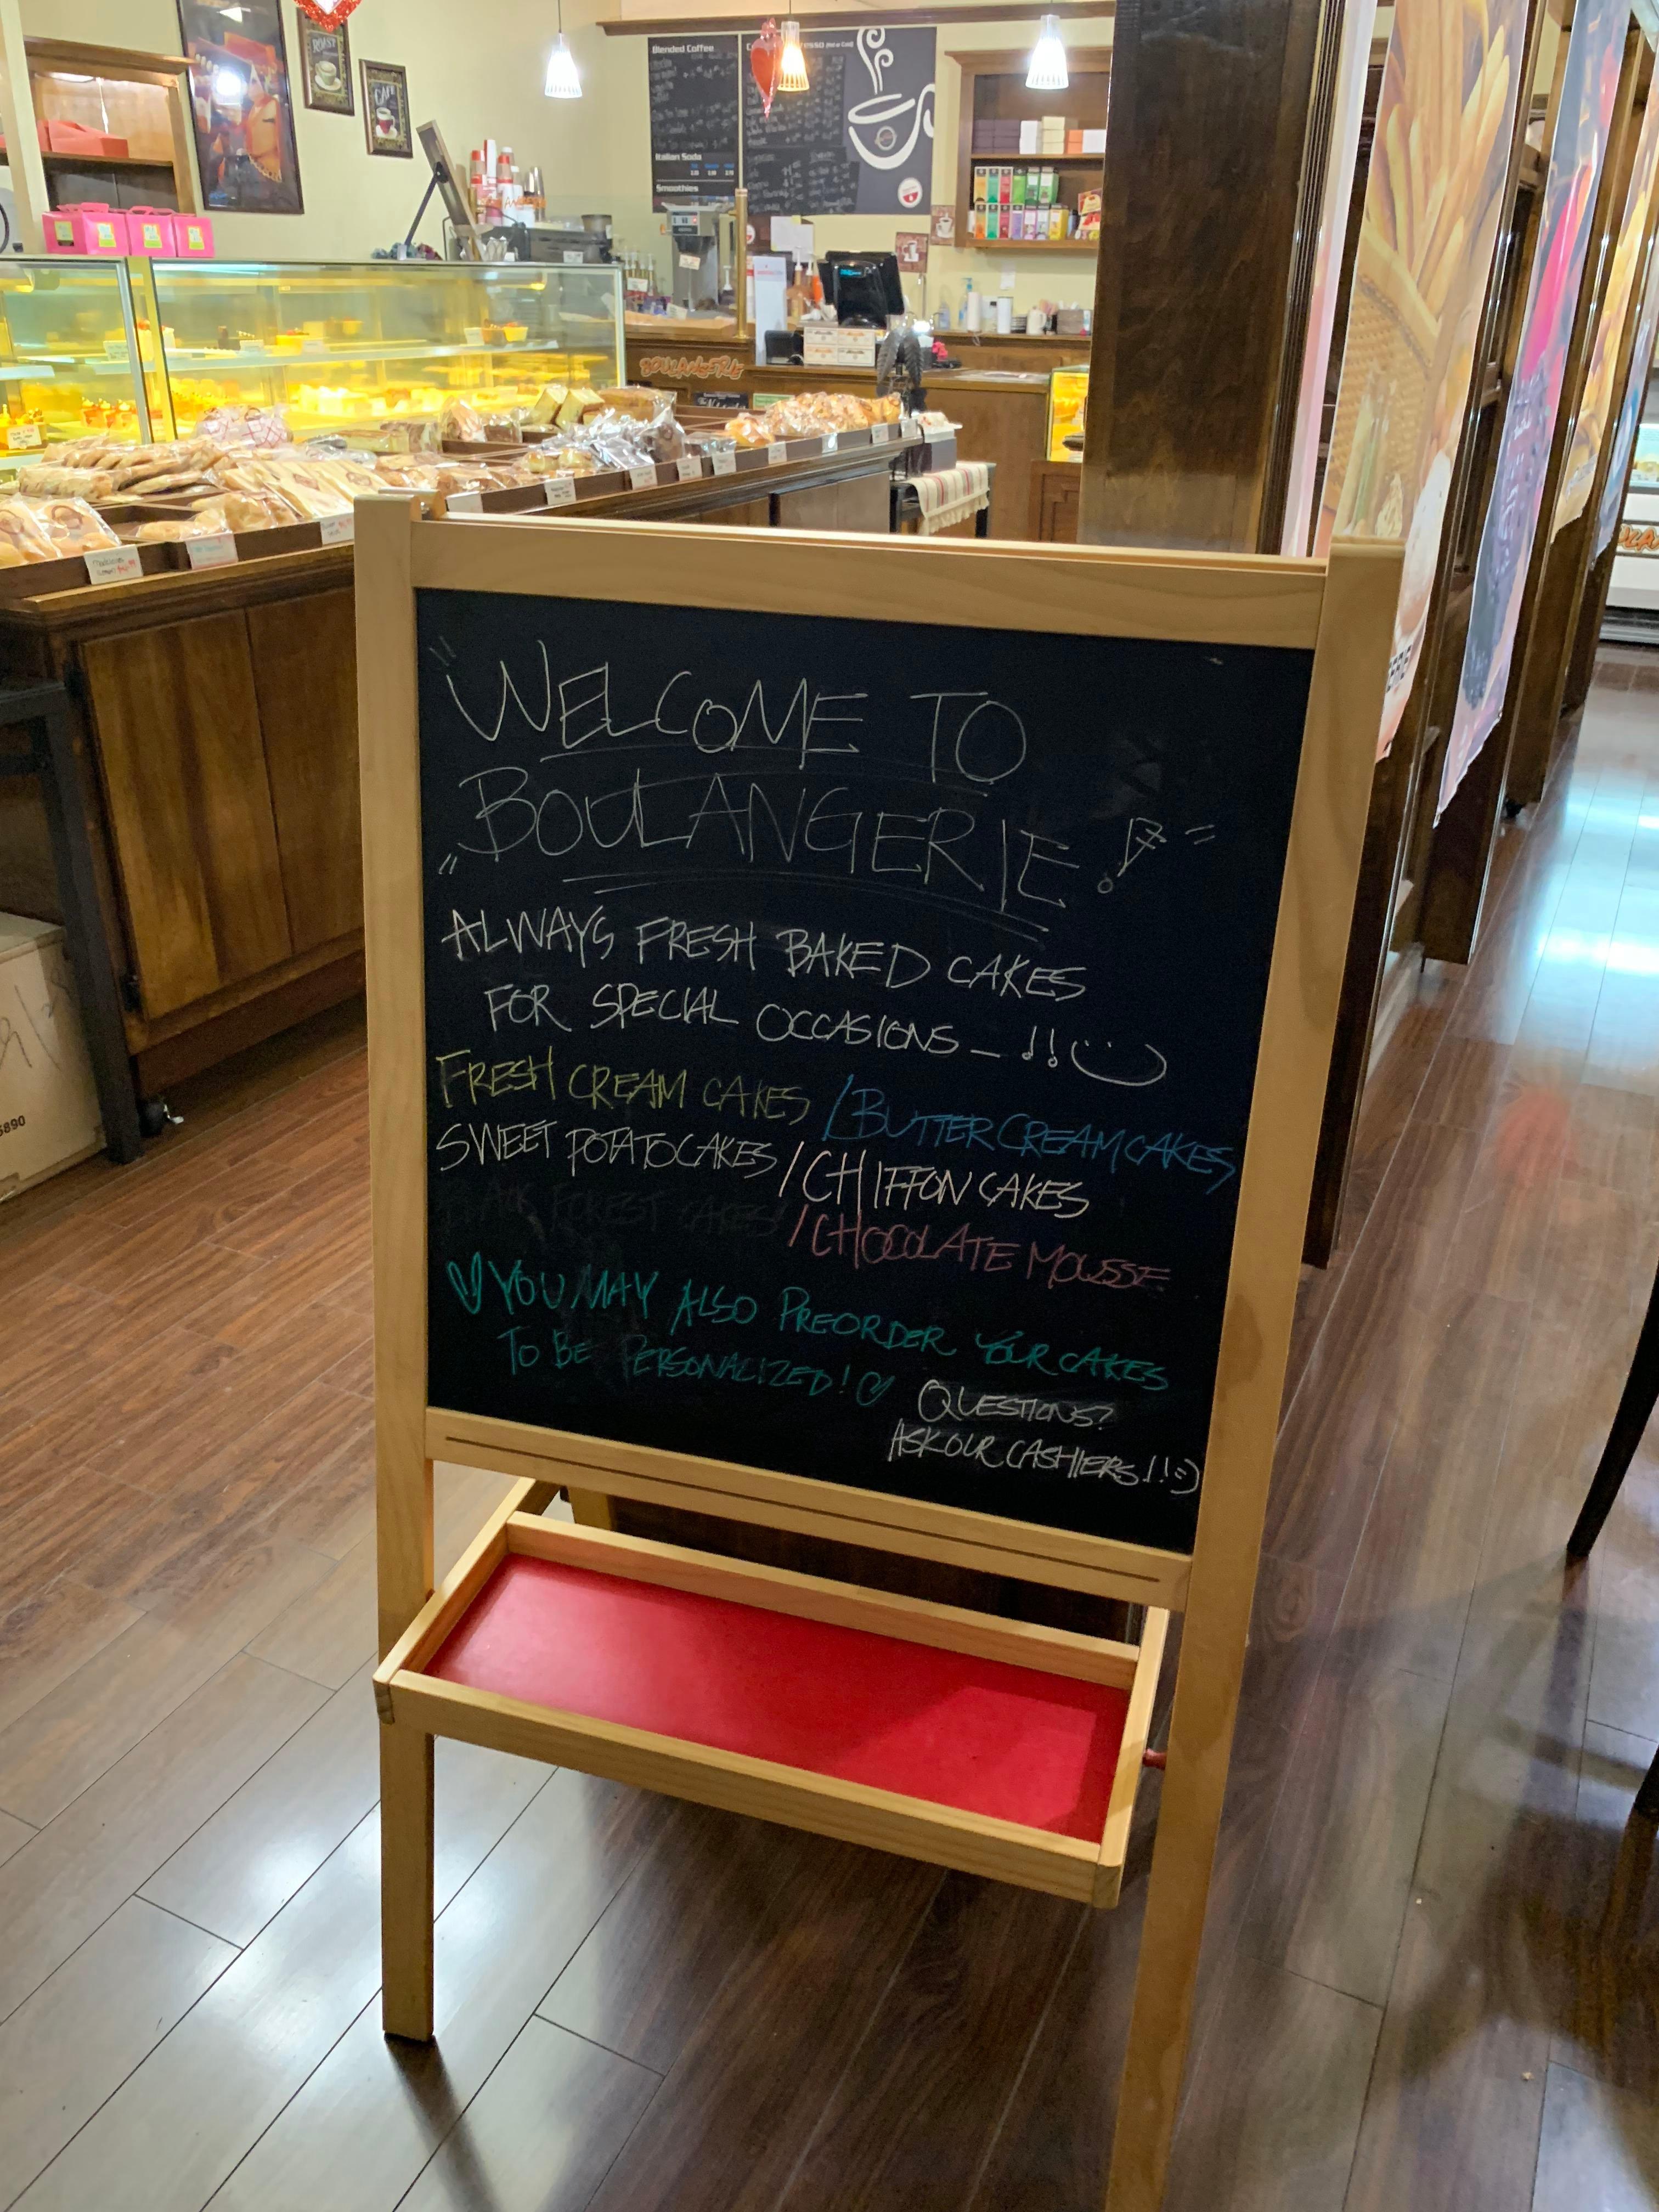 ROAST
CAFE
Blended Coffee
Italian Soda
Smoothies
BOULANGERIE
"WELCOME TO
BOULANGERIE!"
ALWAYS FRESH BAKED CAKES
FOR SPECIAL OCCASIONS_ !!
FRESH CREAM CAKES /BUTTER CREAM CAKES
SWEET POTATO CAKES /CHIFFON CAKES
BLACK FOREST CAKES /CHOCOLATE MOUSSE
♡YOU MAY ALSO PREORDER YOUR CAKES
TO BE PERSONALIZED!♡
QUESTIONS?
ASK OUR CASHIERS!!=)
5890